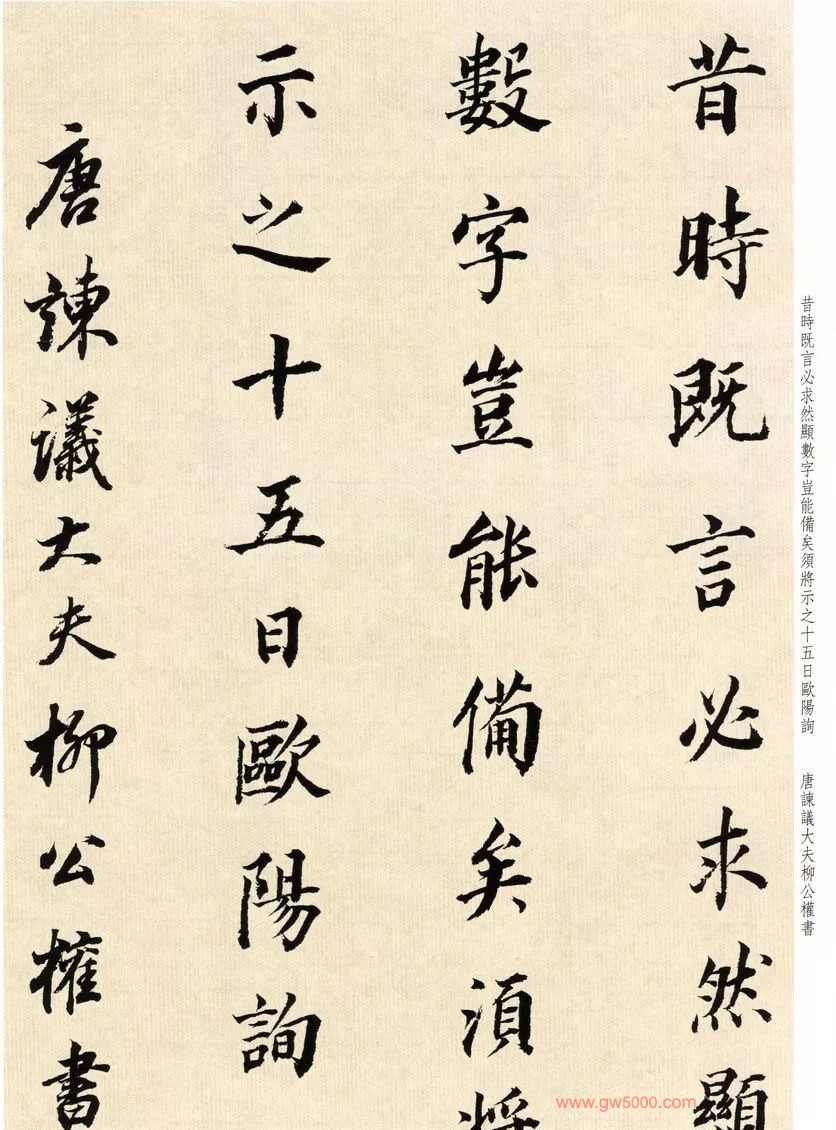 昔時既言必求然顯
數字豈能備矣須將
示之十五日歐陽詢
唐諫議大夫柳公權書
昔時既言必求然顯數字豈能備矣須將示之十五日歐陽詢 唐諫議大夫柳公權書
www.gw5000.com